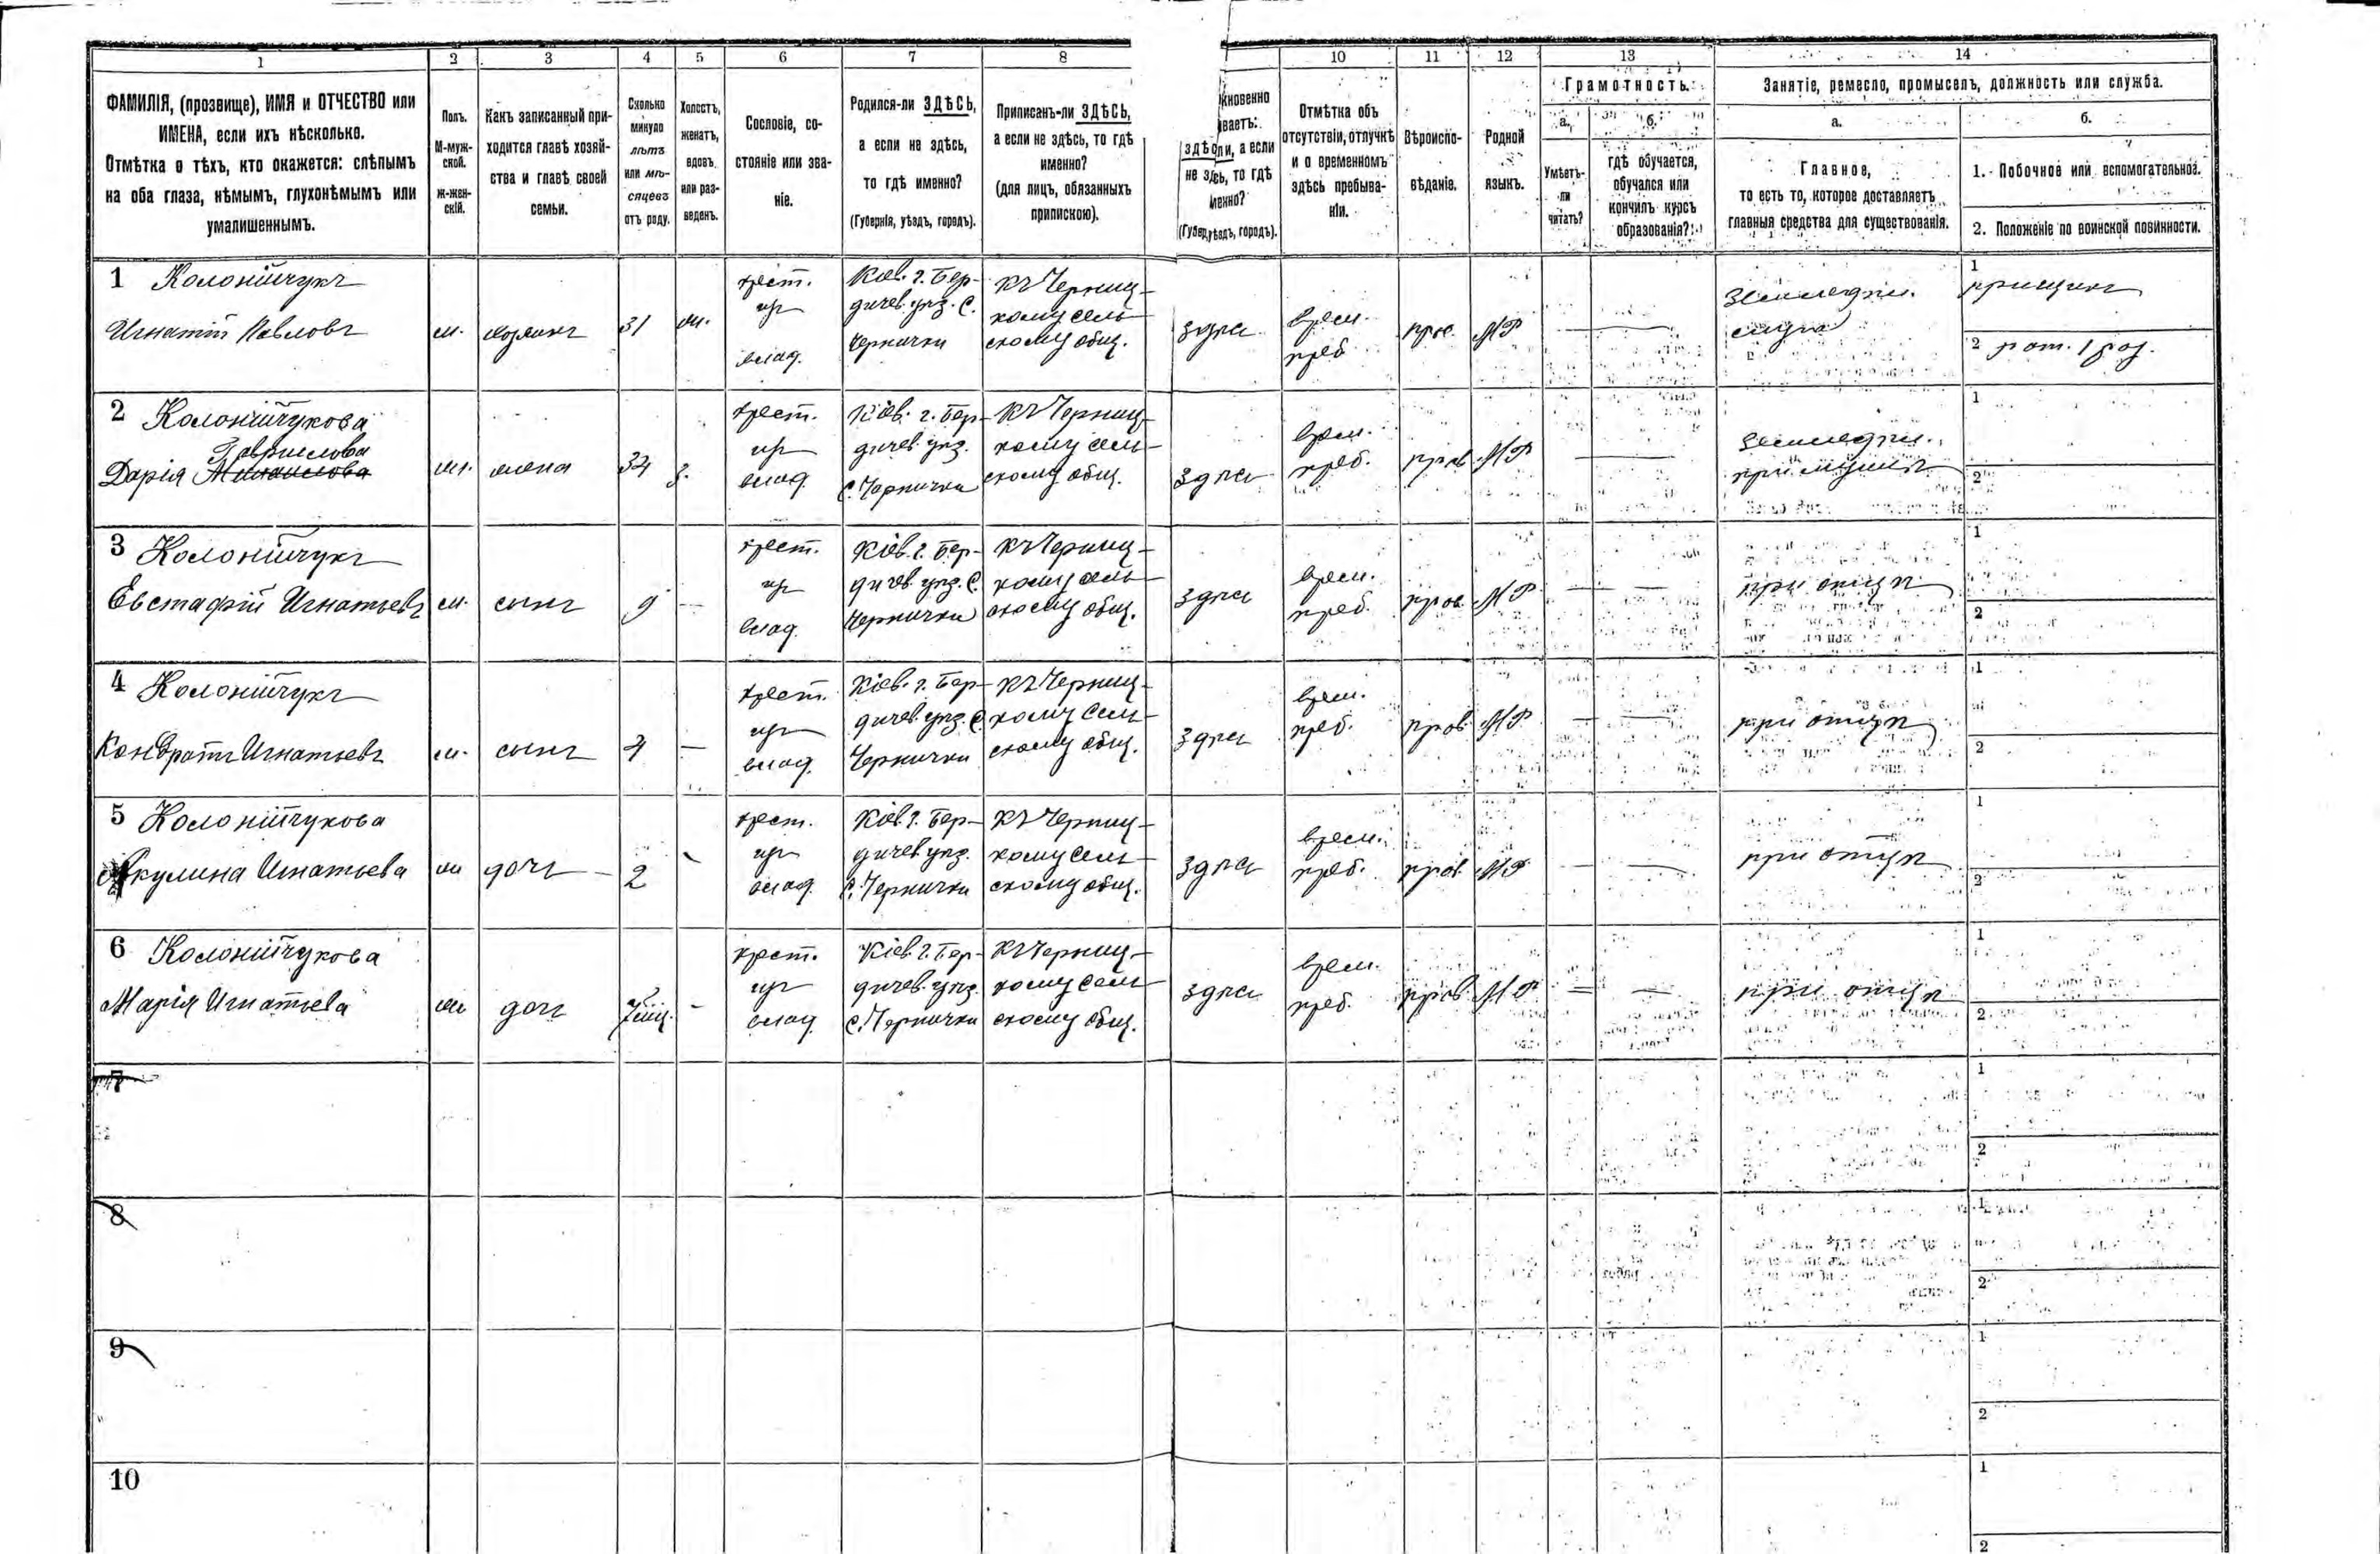 1 2 3 4 5 6 7 8 10 11 12 13 14
ФАМИЛІЯ, (прозвище), ИМЯ и ОТЧЕСТВО или
ИМЕНА, если ихъ нѣсколько.
Отмѣтка о тѣхъ, кто окажется: слѣпымъ
на оба глаза, нѣмымъ, глухонѣмымъ или
умалишеннымъ.
Полъ.
М-муж-
ской.
ж-жен-
скій.
Какъ записанный при-
ходится главѣ хозяй-
ства и главѣ своей
семьи.
Сколько
минуло
лѣтъ
или мѣ-
сяцевъ
отъ роду.
Холостъ,
женатъ,
вдовъ
или раз-
веденъ.
Сословіе, со-
стояніе или зва-
ніе.
Родился-ли ЗДѢСЬ,
а если не здѣсь,
то гдѣ именно?
(Губернія, уѣздъ, городъ).
Приписанъ-ли ЗДѢСЬ,
а если не здѣсь, то гдѣ
именно?
(для лицъ, обязанныхъ
припискою).
кновенно
ваетъ:
а если
то гдѣ
менно?
городъ).
Отмѣтка объ
отсутствіи, отлучкѣ
и о временномъ
здѣсь пребыва-
ніи.
Вѣроиспо-
вѣданіе.
Родной
языкъ.
Грамотность.
а.
Умѣетъ-
ли
читать?
б.
гдѣ обучается,
обучался или
кончилъ курсъ
образованія?
Занятіе, ремесло, промыселъ, должность или служба.
а.
Главное,
то есть то, которое доставляетъ
главныя средства для существованія.
б.
1. Побочное или вспомогательное.
2. Положеніе по воинской повинности.
1 Колонійчукъ
Игнатій Павловъ
м. хозяинъ 31 ж.
крест.
из
влад.
Кіев. г. Бер-
дичев. уѣз. С.
Чернички
къ Черниц-
кому сель-
скому общ.
здѣсь
врем.
преб.
прав. МР
земледѣл.
1
2 рат. 1 раз.
2 Колонійчукова
Гаврилова
Дарія
ж. жена 3.
крест.
из
влад.
Кіев. г. Бер-
дичев. уѣз.
С. Чернички
къ Черниц-
кому сель-
скому общ.
здѣсь
врем.
преб.
прав. МР —
земледѣл.
при мужѣ
1
2
3 Колонійчукъ
Евстафій Игнатьевъ
м. сынъ 9 —
крест.
из
влад.
Кіев. г. Бер-
дичев. уѣз. С.
Чернички
къ Черниц-
кому сель-
скому общ.
здѣсь
врем.
преб.
прав. МР — —
при отцѣ
1
2
4 Колонійчукъ
Кондратъ Игнатьевъ
м. сынъ 4 —
крест.
из
влад.
Кіев. г. Бер-
дичев. уѣз. С.
Чернички
къ Черниц-
кому сель-
скому общ.
здѣсь
врем.
преб.
прав. МР — —
при отцѣ
1
2
5 Колонійчукова
Акулина Игнатьева
ж дочь 2 —
крест.
из
влад.
Кіев. г. Бер-
дичев. уѣз.
С. Чернички
къ Черниц-
кому сель-
скому общ.
здѣсь
врем.
преб.
прав. МР — —
при отцѣ
1
2
6 Колонійчукова
Марія Игнатьева
ж дочь —
крест.
из
влад.
Кіев. г. Бер-
дичев. уѣз.
С. Чернички
къ Черниц-
кому сель-
скому общ.
здѣсь
врем.
преб.
прав. МР — —
при отцѣ
1
2
7
1
2
8
1
2
9
1
2
10
1
2